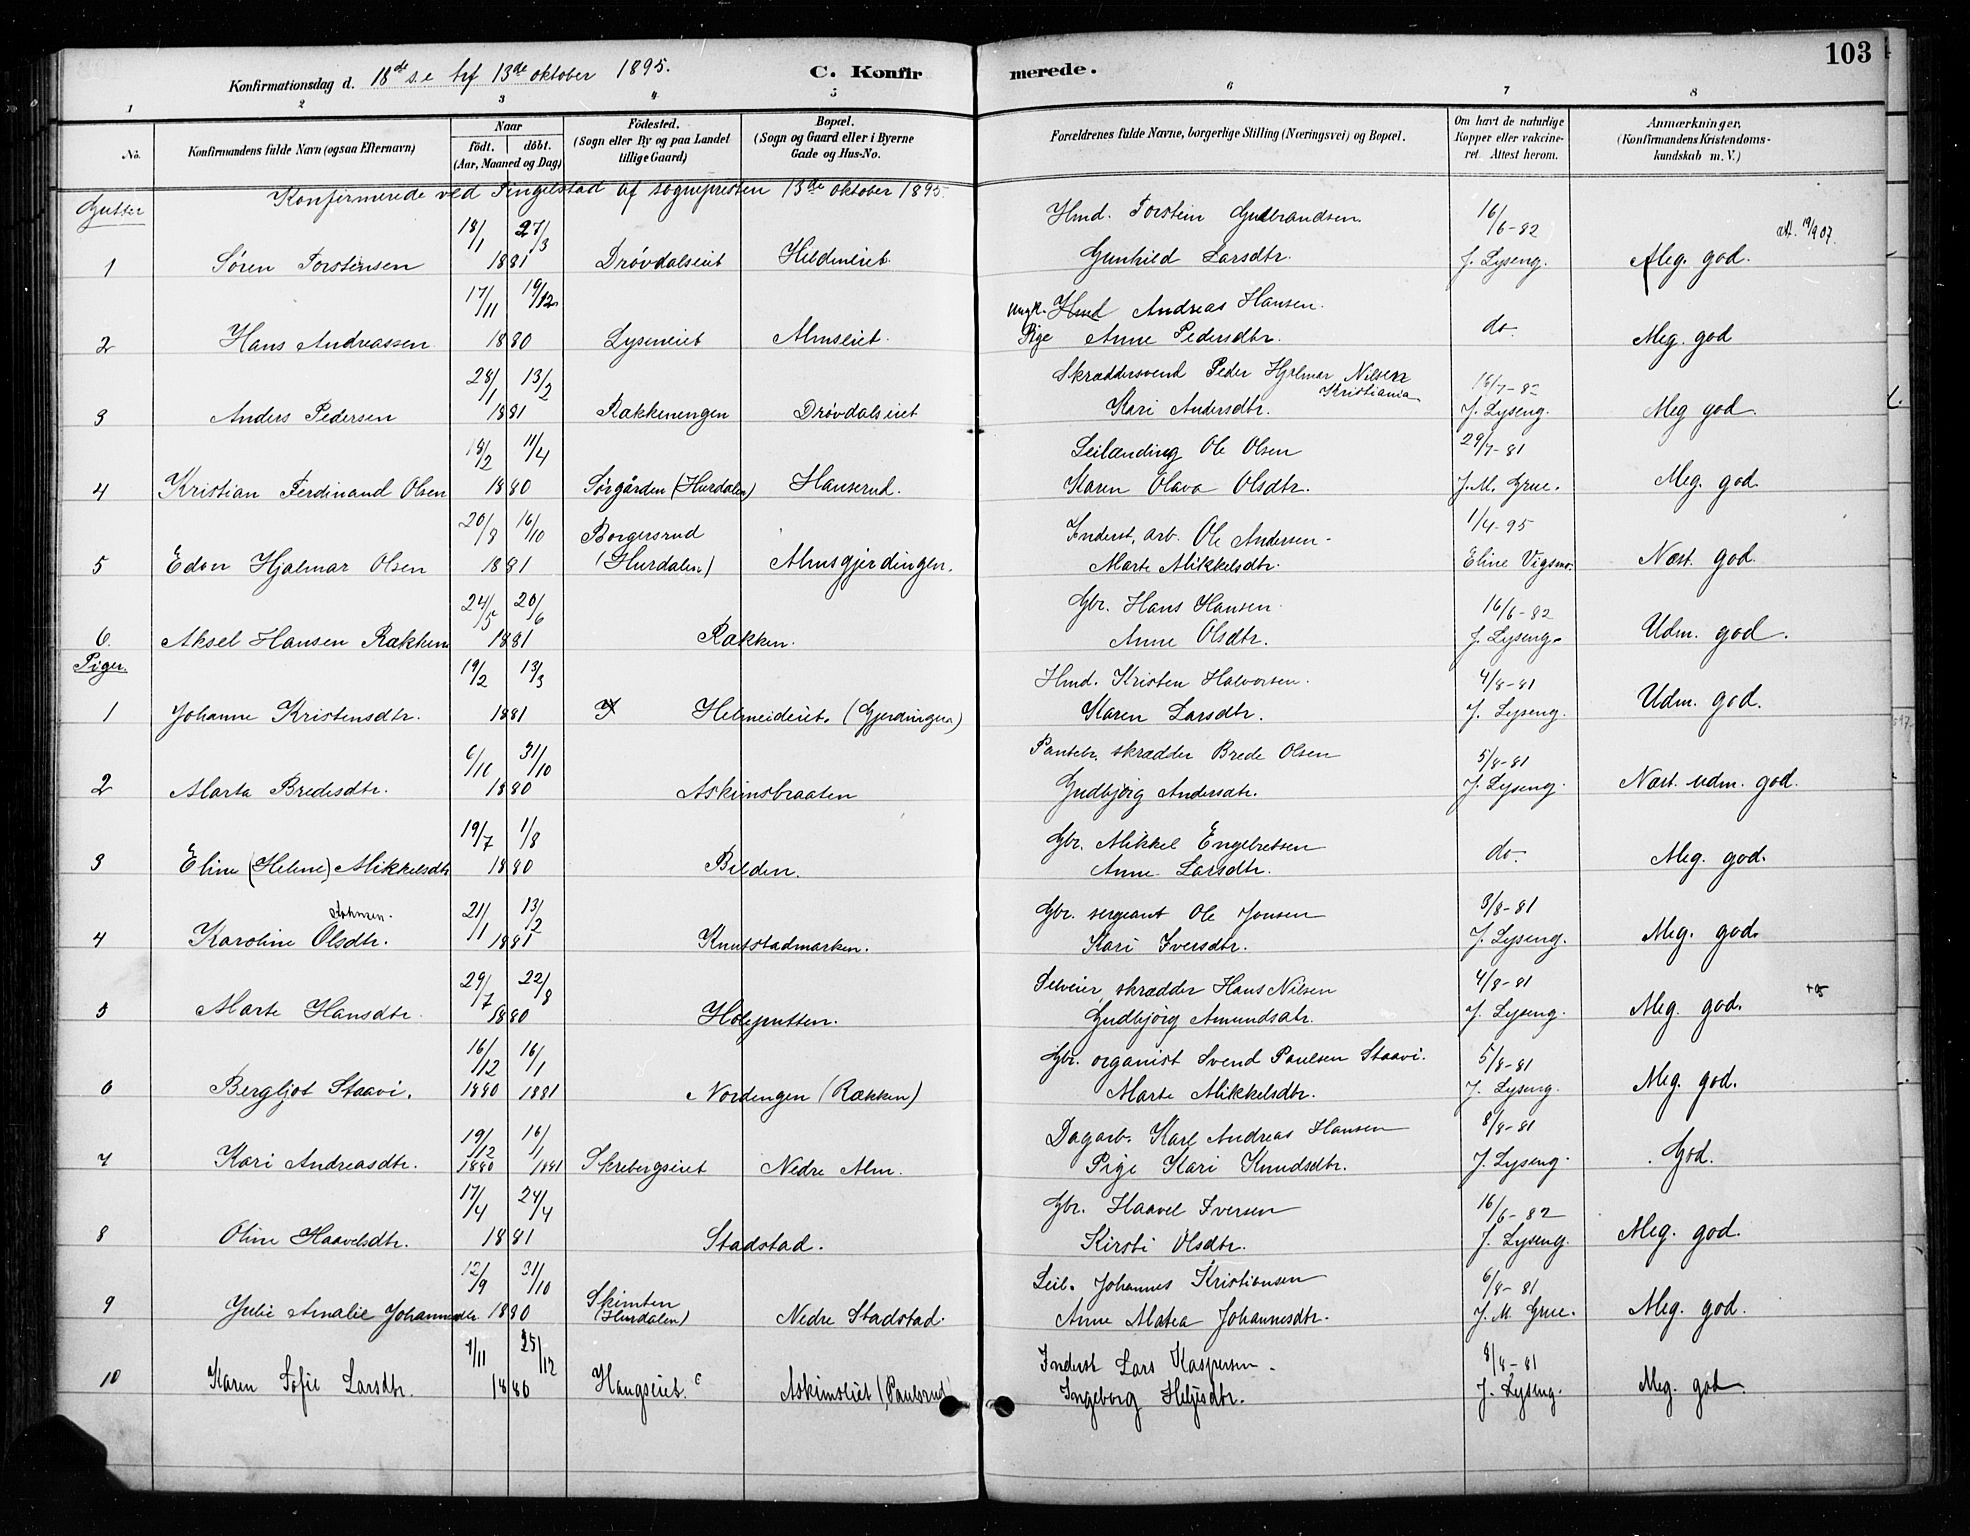 103
Konfirmationsdag d. 18de s.e. trf 13de oktober 1895.
C. Konfirmerede.
1 2 3 4 5 6 7 8
No. Konfirmandens fulde Navn (ogsaa Efternavn) Naar født. døbt. (Aar, Maaned og Dag) Fødested. (Sogn eller By og paa Landet tillige Gaard) Bopæl. (Sogn og Gaard eller i Byerne Gade og Hus-No.) Forældrenes fulde Navne, borgerlige Stilling (Næringsvei) og Bopæl. Om havt de naturlige Kopper eller vakcineret. Attest herom. Anmærkninger, (Konfirmandens Kristendomskundskab m. V.)
Konfirmerede ved Tingelstad af sognepresten 13de oktober 1895.
Gutter
18/1 27/3 Hmd. Torstein Gulbrandsen 16/6-82 att. 19/9 07.
1 Søren Torstensen 1881 Drøvdalseiet Hildeneiet Gunhild Larsdtr. J. Lyseng. Meg. god.
17/11 19/12 Ungk. Hmd Andreas Hansen.
2 Hans Andreassen 1880 Lyseneiet Almseiet. Pige Anne Pedersdtr. do Meg. god
28/1 13/2 Skræddersvend Peder Hjalmar Nilsen Kristiania 16/7-82
3 Anders Pedersen 1881 Rækkenengen Drøvdalseiet Kari Andersdtr. J. Lyseng. Meg god.
18/2 11/4 Leilænding Ole Olsen 29/7-81
4 Kristian Ferdinand Olsen 1880 Sørgården (Hurdalen) Hanserud. Karen Olava Olsdtr. J. M. Grue. Meg. god.
20/8 16/10 Borgersrud Inderst, arb. Ole Andersen 1/4-95
5 Edvin Hjalmar Olsen 1881 (Hurdalen) Almsgjerdingen. Marte Mikkelsdtr. Eline Vigsmo. Næst. god.
24/5 20/6 Gbr. Hans Hansen 16/6-82
6. Aksel Hansen Rækken 1881 Rækken. Anne Olsdtr. J. Lyseng. Udm. god.
Piger.
19/2 13/3 Hmd. Kristen Halvorsen. 4/8-81
1 Johanne Kristensdtr. 1881 Helmeideiet. (Gjerdingen) Karen Larsdtr. J. Lyseng. Udm. god.
6/10 31/10 Pantebr. skrædder Brede Olsen 5/8-81
2 Marta Bredesdtr. 1880 Askimsbraaten Gudbjørg Andersdtr. J. Lyseng. Næst. udm. god.
19/7 1/8 Gbr. Mikkel Engebretsen
3 Eline (Helene) Mikkelsdtr 1880 Bilden. Anne Larsdtr. do. Meg. god.
21/1 13/2 Gbr. sergeant Ole Jonsen 8/8-81
4 Karoline Olsdtr. 1881 Knutstadmarken. Kari Iversdtr. J. Lyseng. Meg. god.
29/7 22/8 Selveier, skrædder Hans Nilsen 4/8-81
5 Marte Hansdtr. 1880 Holeputten. Gudbjørg Amundsdtr. J. Lyseng. Meg. god.
16/12 16/1 Gbr. organist Svend Paulsen Staavi. 5/8-81
6 Bergljot Staavi. 1880 1881 Nordengen (Rækken) Marte Mikkelsdtr. J. Lyseng. Meg. god.
19/12 16/1 Dagarb. Karl Andreas Hansen 8/8-81
7 Kari Andreasdtr. 1880 1881 Skrebergseiet Nedre Alm. Pige Kari Knudsdtr. J. Lyseng. God.
17/4 24/4 Gbr. Haavel Iversen 16/6-82
8 Oline Haavelsdtr. 1881 Stadstad. Kirsti Olsdtr. J. Lyseng. Meg. god.
12/9 31/10 Skimten Leil. Johannes Kristiansen 6/8-81
9 Julie Amalie Johannesdtr 1880 (Hurdalen) Nedre Stadstad. Anne Matea Johannesdtr. J. M. Grue. Meg. god.
4/11 25/12 Inderst Lars Kaspersen 8/8-81
10 Karen Sofie Larsdtr. 1880 Haugseiet. Askimseiet (Paulsrud) Ingeborg Heljesdtr. J. Lyseng. Meg. god.